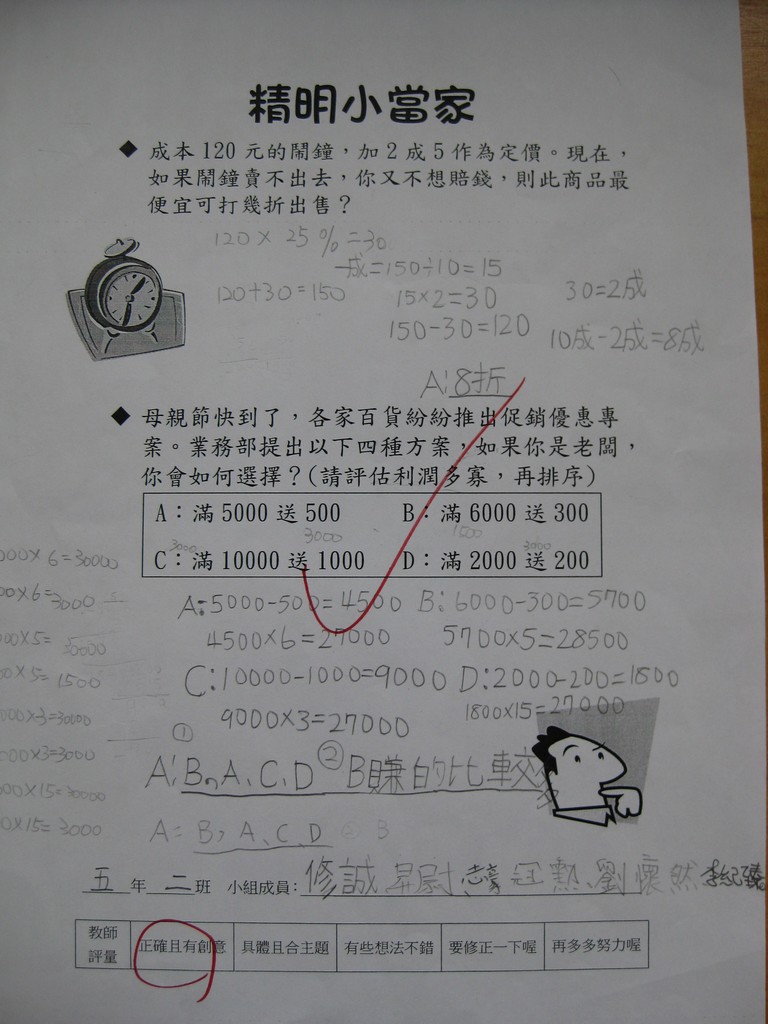 精明小當家
◆ 成本 120 元的鬧鐘,加 2 成 5 作為定價。現在,
如果鬧鐘賣不出去,你又不想賠錢,則此商品最
便宜可打幾折出售?
120 × 25 % = 30
一成=150÷10=15
120+30=150
15×2=30
30=2成
150-30=120
10成-2成=8成
A:8折
◆ 母親節快到了,各家百貨紛紛推出促銷優惠專
案。業務部提出以下四種方案,如果你是老闆,
你會如何選擇?(請評估利潤多寡,再排序)
A:滿 5000 送 500 B:滿 6000 送 300
3000 3000 1500 3000
C:滿 10000 送 1000 D:滿 2000 送 200
000×6=30000
00×6=3000
00×5=30000
0×5=1500
000×3=30000
000×3=3000
00×15=30000
0×15=3000
A:5000-500=4500 B:6000-300=5700
4500×6=27000 5700×5=28500
C:10000-1000=9000 D:2000-200=1800
9000×3=27000 1800×15=27000
① ②
A:B>A、C、D B賺的比較多
A: B>A、C、D ② B
五 年 二 班 小組成員: 修誠 昇尉 冠勳、劉懷然 李紀臻
教師
評量
正確且有創意 具體且合主題 有些想法不錯 要修正一下喔 再多多努力喔